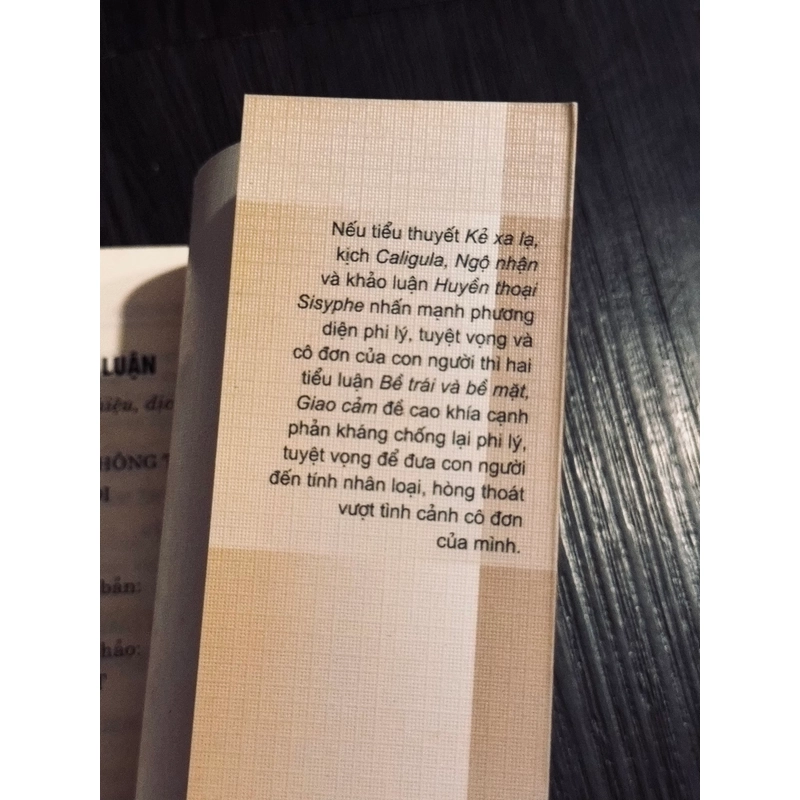 Nếu tiểu thuyết Kẻ xa lạ,
kịch Caligula, Ngộ nhận
và khảo luận Huyền thoại
Sisyphe nhấn mạnh phương
diện phi lý, tuyệt vọng và
cô đơn của con người thì hai
tiểu luận Bề trái và bề mặt,
Giao cảm đề cao khía cạnh
phản kháng chống lại phi lý,
tuyệt vọng để đưa con người
đến tính nhân loại, hòng thoát
vượt tình cảnh cô đơn
của mình.
LUẬN
bản: